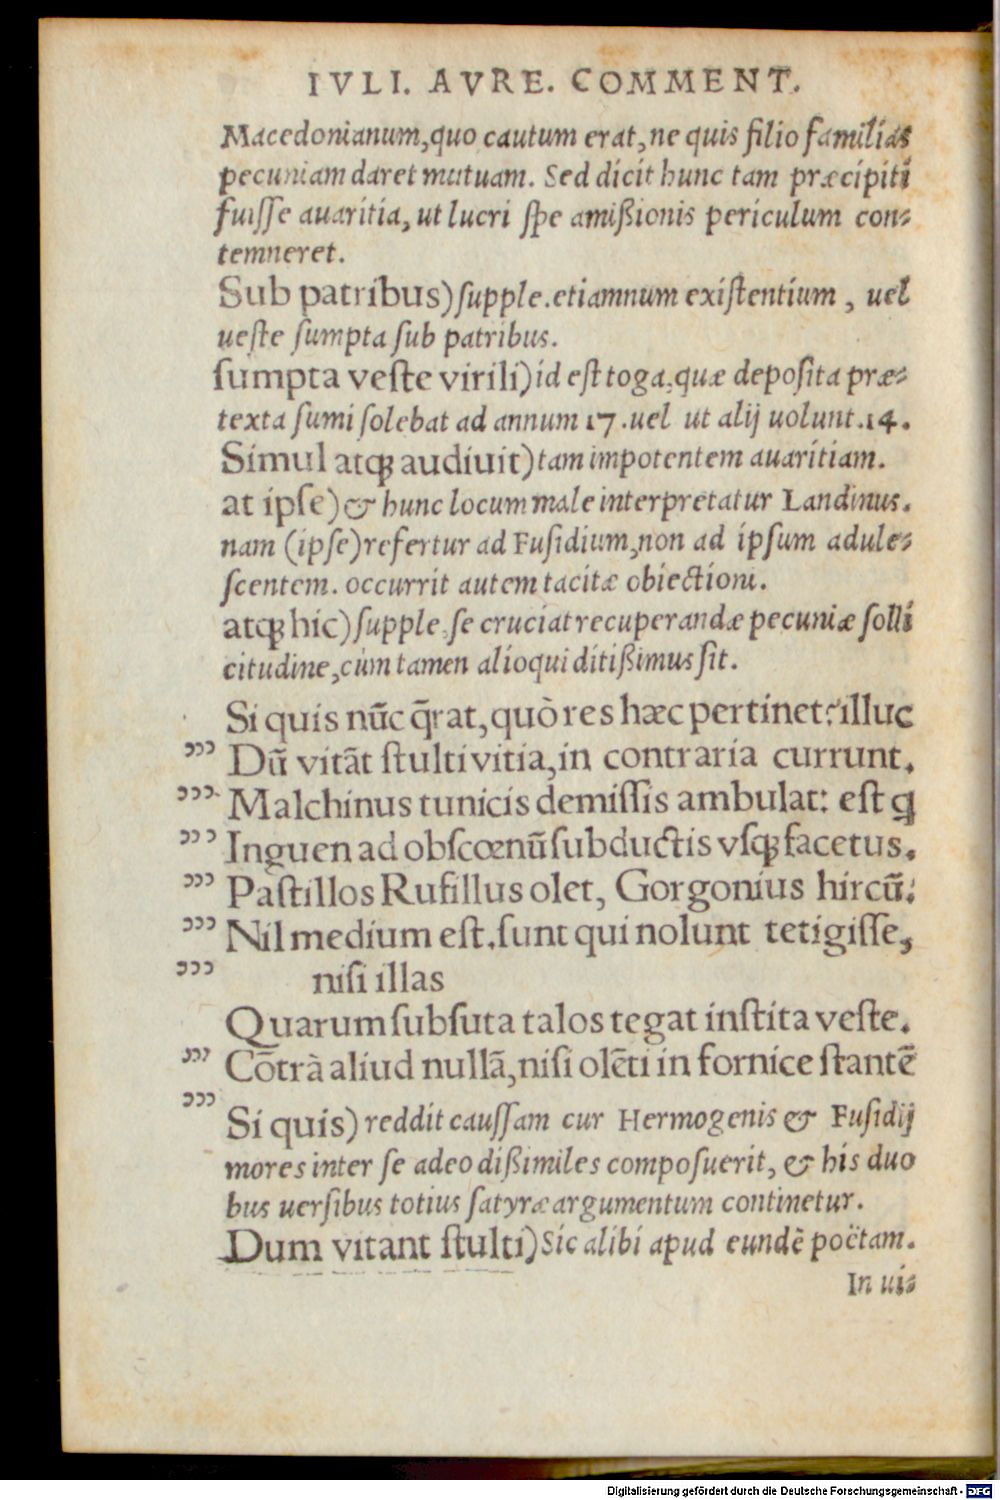 IVLI. AVRE. COMMENT.
Macedonianum, quo cautum erat, ne quis filio familias
pecuniam daret mutuam. Sed dicit hunc tam præcipiti
fuiſſe auaritia, ut lucri ſpe amißionis periculum con-
temneret.
Sub patribus) ſupple. etiamnum exiſtentium, uel
ueſte ſumpta ſub patribus.
ſumpta veſte virili) id eſt toga, quæ depoſita præ-
texta ſumi ſolebat ad annum 17. uel ut alij uolunt. 14.
Simul atqꝫ audiuit) tam impotentem auaritiam.
at ipſe) & hunc locum male interpretatur Landinus.
nam (ipſe) refertur ad Fuſidium, non ad ipſum adule-
ſcentem. occurrit autem tacitæ obiectioni.
atqꝫ hic) ſupple. ſe cruciat recuperandæ pecuniæ ſolli
citudine, cùm tamen alioqui ditißimus ſit.
Si quis nūc q̄rat, quò res hæc pertinet? illuc
››› Dū vitāt ſtulti vitia, in contraria currunt.
››› Malchinus tunicis demiſſis ambulat: eſt ꝗ
››› Inguen ad obſcœnū ſubductis vſqꝫ facetus.
››› Paſtillos Rufillus olet, Gorgonius hircū.
››› Nil medium eſt. ſunt qui nolunt tetigiſſe,
››› niſi illas
Quarum ſubſuta talos tegat inſtita veſte.
››› Cōtrà aliud nullā, niſi olēti in fornice ſtantē
›››
Si quis) reddit cauſſam cur Hermogenis & Fuſidij
mores inter ſe adeo dißimiles compoſuerit, & his duo
bus uerſibus totius ſatyræ argumentum continetur.
Dum vitant ſtulti) Sic alibi apud eundē poëtam.
In ui-
Digitalisierung gefördert durch die Deutsche Forschungsgemeinschaft - DFG